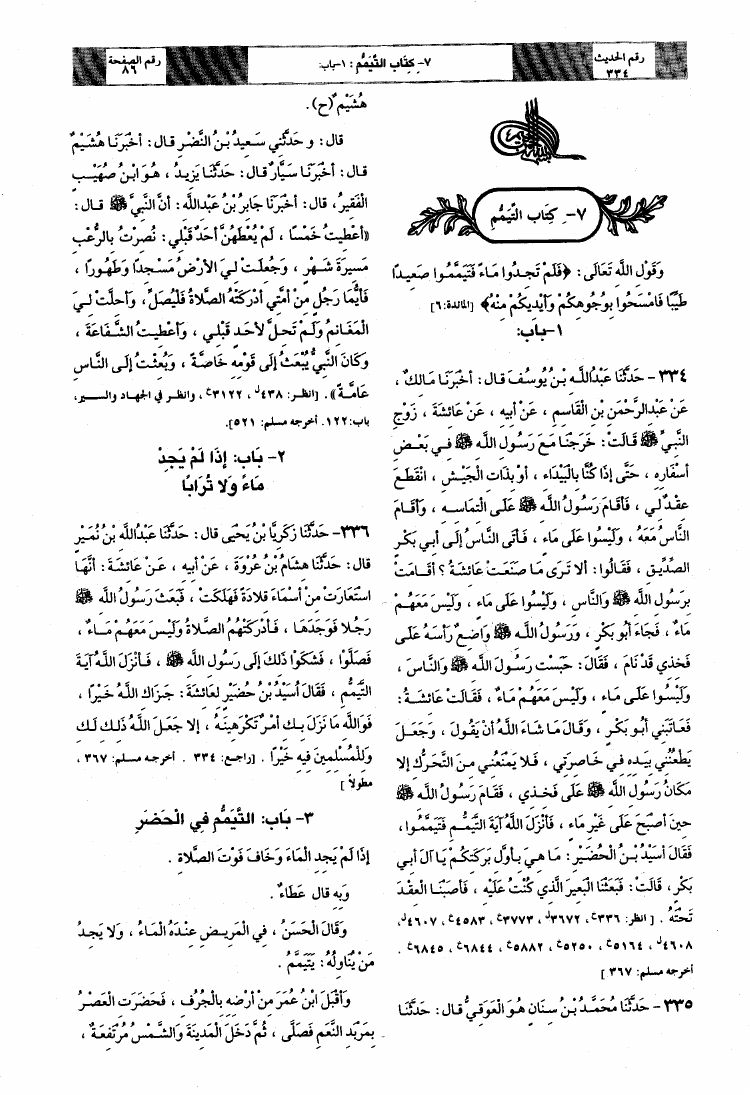 رقم الحديث
٣٣٤
٧- كِتَاب التَّيَمُّم : ١-باب:
رقم الصفحة
٨٦
٧- كِتَاب التَّيَمُّمِ
وَقَوْلِ اللَّه تَعَالَى: ﴿فَلَمْ تَجِدُوا مَاءً فَتَيَمَّمُوا صَعِيداً
طَيِّبًا فَامْسَحُوا بِوُجُوهِكُمْ وَأَيْدِيكُمْ مِنْهُ﴾ [المائدة:٦]
١-باب:
٣٣٤- حَدَّثَنَا عَبْدُاللَّه بْنُ يُوسُفَ قال: أخْبَرَنَا مَالكٌ ،
عَنْ عَبْدِالرَّحْمَنِ بْنِ القَاسِمِ ، عَنْ أبيهِ ، عَنْ عَائشَةَ ، زَوْجِ
النَّبِيِّ ﷺ قَالَتْ: خَرَجْنَا مَعَ رَسُولِ اللَّه ﷺ فِي بَعْضِ
أسْفَارِهِ ، حَتَّى إذَا كُنَّا بِالْبَيْدَاءِ ، أوْ بِذَاتِ الْجَيْشِ ، انْقَطَعَ
عِقْدٌ لِي ، فَأقَامَ رَسُولُ اللَّه ﷺ عَلَى الْتِمَاسِهِ ، وَأقَامَ
النَّاسُ مَعَهُ ، وَلَيْسُوا عَلَى مَاءٍ ، فَأتَى النَّاسُ إلَى أبِي بَكْرٍ
الصِّدِّيقِ ، فَقَالُوا: ألا تَرَى مَا صَنَعَتْ عَائِشَةُ ؟ أقَامَتْ
بِرَسُولِ اللَّه ﷺ وَالنَّاسِ ، وَلَيْسُوا عَلَى مَاءٍ ، وَلَيْسَ مَعَهُمْ
مَاءٌ ، فَجَاءَ أبُو بَكْرٍ ، وَرَسُولُ اللَّه ﷺ وَاضِعٌ رَأسَهُ عَلَى
فَخِذِي قَدْ نَامَ ، فَقَالَ: حَبَسْتِ رَسُولَ اللَّه ﷺ وَالنَّاسَ ،
وَلَيْسُوا عَلَى مَاءٍ ، وَلَيْسَ مَعَهُمْ مَاءٌ ، فَقَالَتْ عَائشَةُ :
فَعَاتَبَنِي أبُو بَكْرٍ ، وَقَالَ مَا شَاءَ اللَّهُ أنْ يَقُولَ ، وَجَعَلَ
يَطْعُنُنِي بِيَدِهِ فِي خَاصِرَتِي ، فَلا يَمْنَعُنِي مِنَ التَّحَرُّكِ إلا
مَكَانُ رَسُولِ اللَّه ﷺ عَلَى فَخِذِي ، فَقَامَ رَسُولُ اللَّه ﷺ
حِينَ أصْبَحَ عَلَى غَيْرِ مَاءٍ ، فَأنْزَلَ اللَّهُ آيَةَ التَّيَمُّمِ فَتَيَمَّمُوا،
فَقَالَ أُسَيْدُ بْنُ الْحُضَيْرِ: مَا هِيَ بِأوَّلِ بَرَكَتِكُمْ يَا آلَ أبِي
بَكْرٍ، قَالَتْ: فَبَعَثْنَا الْبَعِيرَ الَّذِي كُنْتُ عَلَيْهِ ، فَأصَبْنَا الْعِقْدَ
تَحْتَهُ . [ انظر: ٣٣٦ج، ٣٦٧٢ر، ٣٧٧٣ج، ٤٥٨٣ج، ٤٦٠٧ر،
٤٦٠٨ر، ٥١٦٤ج، ٥٢٥٠ج، ٥٨٨٢ج، ٦٨٤٤ج، ٦٨٤٥ج .
أخرجه مسلم: ٣٦٧ ]
٣٣٥- حَدَّثَنَا مُحَمَّدُ بْنُ سِنَانٍ هُوَ الْعَوَقِيُّ قال: حَدَّثَنَا
هُشَيْمٌ (ح).
قال: و حَدَّثَنِي سَعِيدُ بْنُ النَّضْرِ قال: أخْبَرَنَا هُشَيْمٌ
قال: أخْبَرَنَا سَيَّارٌ قال: حَدَّثَنَا يَزِيدُ ، هُوَ ابْنُ صُهَيْبٍ
الْفَقِيرُ، قال: أخْبَرَنَا جَابِرُ بْنُ عَبْدِاللَّه: أنَّ النَّبِيَّ ﷺ قال:
«أُعْطِيتُ خَمْسًا ، لَمْ يُعْطَهُنَّ أحَدٌ قَبْلِي: نُصِرْتُ بِالرُّعْبِ
مَسِيرَةَ شَهْرٍ ، وَجُعِلَتْ لِيَ الأرْضُ مَسْجِدًا وَطَهُورًا ،
فَأيُّمَا رَجُلٍ مِنْ أُمَّتِي أدْرَكَتْهُ الصَّلاةُ فَلْيُصَلِّ، وَأُحِلَّتْ لِيَ
الْمَغَانِمُ وَلَمْ تَحِلَّ لأحَدٍ قَبْلِي ، وَأُعْطِيتُ الشَّفَاعَةَ ،
وَكَانَ النَّبِيُّ يُبْعَثُ إلَى قَوْمِهِ خَاصَّةً ، وَبُعِثْتُ إلَى النَّاسِ
عَامَّةً» . [انظر: ٤٣٨ر، ٣١٢٢ج، وانظر في الجهاد والسير،
باب:١٢٢. أخرجه مسلم: ٥٢١].
٢- بَاب: إِذَا لَمْ يَجِدْ
مَاءً وَلا تُرَابًا
٣٣٦- حَدَّثَنَا زَكَرِيَّا بْنُ يَحْيَى قال: حَدَّثَنَا عَبْدُاللَّه بْنُ نُمَيْرٍ
قال: حَدَّثَنَا هِشَامُ بْنُ عُرْوَةَ ، عَنْ أبِيهِ ، عَنْ عَائِشَةَ: أنَّهَا
اسْتَعَارَتْ مِنْ أسْمَاءَ قِلادَةً فَهَلَكَتْ ، فَبَعَثَ رَسُولُ اللَّه ﷺ
رَجُلا فَوَجَدَهَا ، فَأدْرَكَتْهُمُ الصَّلاةُ وَلَيْسَ مَعَهُمْ مَاءٌ ،
فَصَلَّوْا ، فَشَكَوْا ذَلِكَ إلَى رَسُولِ اللَّه ﷺ ، فَأنْزَلَ اللَّهُ آيَةَ
التَّيَمُّمِ ، فَقَالَ أُسَيْدُ بْنُ حُضَيْرٍ لِعَائِشَةَ: جَزَاكِ اللَّهُ خَيْرًا ،
فَوَاللَّهِ مَا نَزَلَ بِكِ أمْرٌ تَكْرَهِينَهُ ، إلا جَعَلَ اللَّهُ ذَلِكِ لَكِ
وَلِلْمُسْلِمِينَ فِيهِ خَيْرًا . [راجع: ٣٣٤ . أخرجه مسلم: ٣٦٧ ،
مطولاً ]
٣- بَاب: التَّيَمُّم فِي الْحَضَرِ
إذَا لَمْ يَجِدِ الْمَاءَ وَخَافَ فَوْتَ الصَّلاةِ .
وَبِهِ قال عَطَاءٌ .
وَقَالَ الْحَسَنُ ، فِي الْمَرِيضِ عِنْدَهُ الْمَاءُ ، وَلا يَجِدُ
مَنْ يُنَاوِلُهُ: يَتَيَمَّمُ .
وَأقْبَلَ ابْنُ عُمَرَ مِنْ أرْضِهِ بِالْجُرُفِ ، فَحَضَرَتِ الْعَصْرُ
بِمَرْبَدِ النَّعَمِ فَصَلَّى ، ثُمَّ دَخَلَ الْمَدِينَةَ وَالشَّمْسُ مُرْتَفِعَةٌ ،